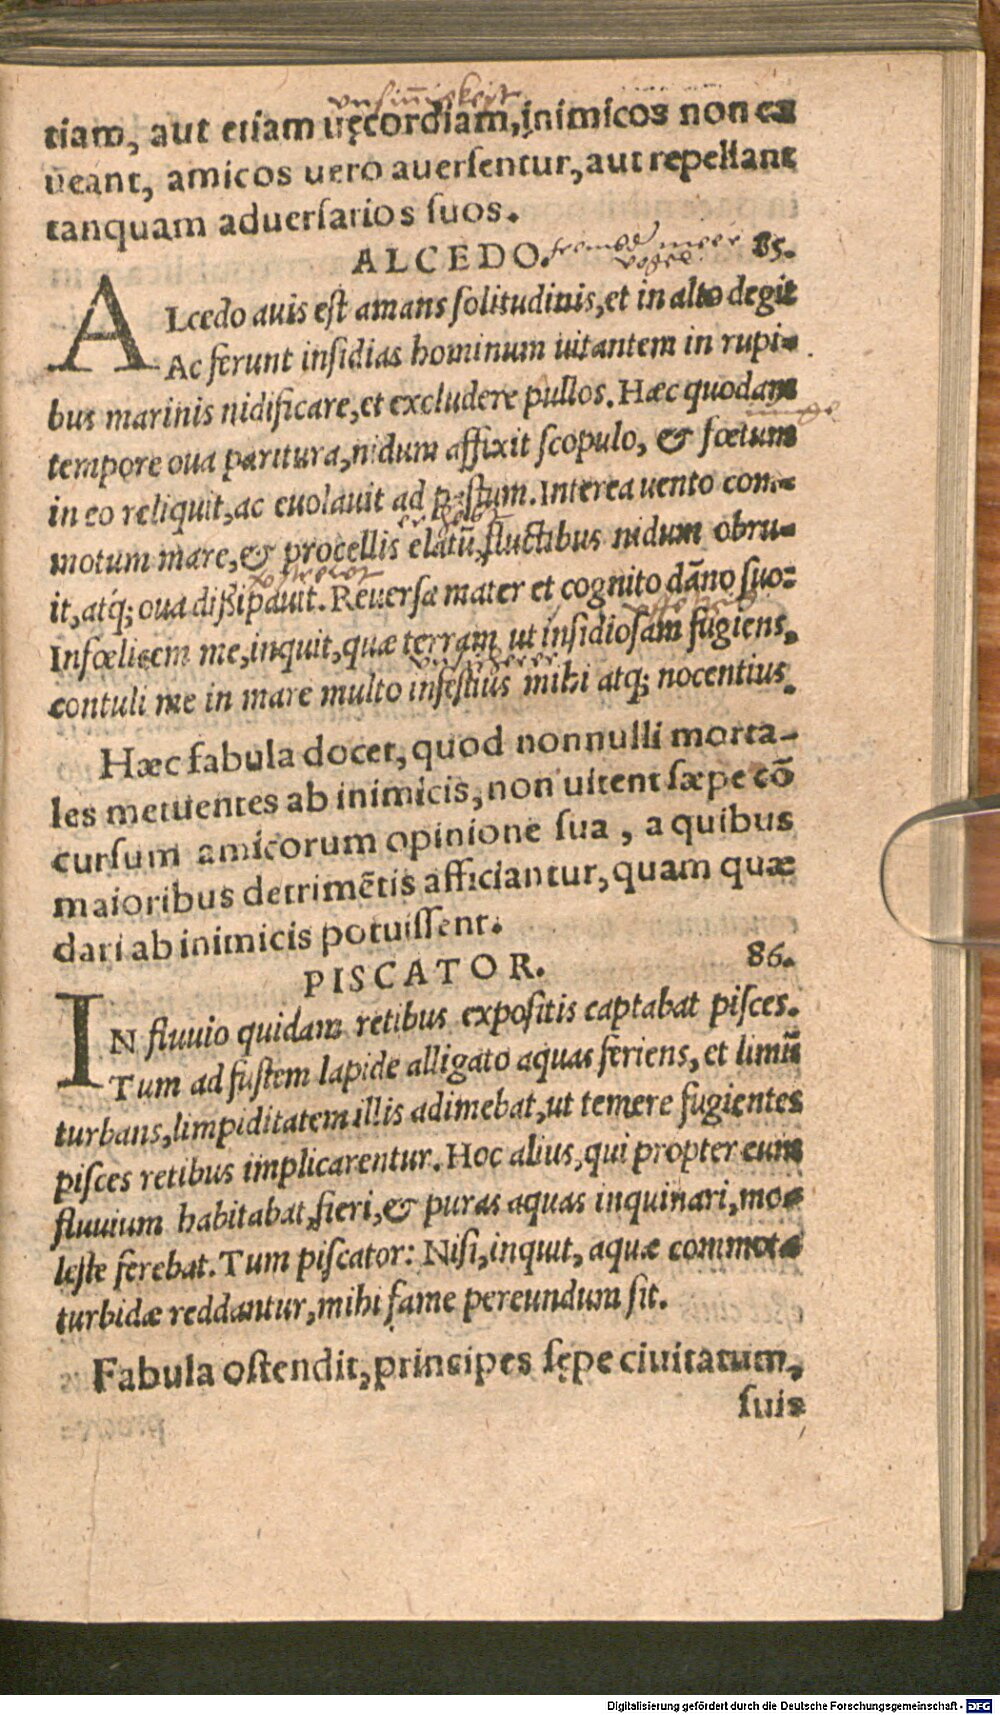 tiam, aut etiam uęcordiam, inimicos non ca
ueant, amicos uero auersentur, aut repellant
tanquam aduersarios suos.
ALCEDO. 85.
ALcedo auis est amans solitudinis, et in alto degit
Ac ferunt insidias hominum uitantem in rupi=
bus marinis nidificare, et excludere pullos. Hæc quodam
tempore oua paritura, nidum affixit scopulo, & fœtum
in eo reliquit, ac euolauit ad pastum. Interea uento com=
motum mare, & procellis elatū, fluctibus nidum obru=
it, atq; oua dissipauit. Reuersa mater et cognito dāno suo:
Infœlicem me, inquit, quæ terram ut insidiosam fugiens,
contuli me in mare multo infestius mihi atq; nocentius.
Hæc fabula docet, quod nonnulli morta-
les metuentes ab inimicis, non uitent sæpe cō
cursum amicorum opinione sua, a quibus
maioribus detrimētis afficiantur, quam quæ
dari ab inimicis potuissent.
PISCATOR. 86.
IN fluuio quidam retibus expositis captabat pisces.
Tum ad fustem lapide alligato aquas feriens, et limū
turbans, limpiditatem illis adimebat, ut temere fugientes
pisces retibus implicarentur. Hoc alius, qui propter eum
fluuium habitabat, fieri, & puras aquas inquinari, mo=
leste ferebat. Tum piscator: Nisi, inquit, aquæ commotæ
turbidæ reddantur, mihi fame pereundum sit.
Fabula ostendit, principes sępe ciuitatum,
suis
Digitalisierung gefördert durch die Deutsche Forschungsgemeinschaft - DFG